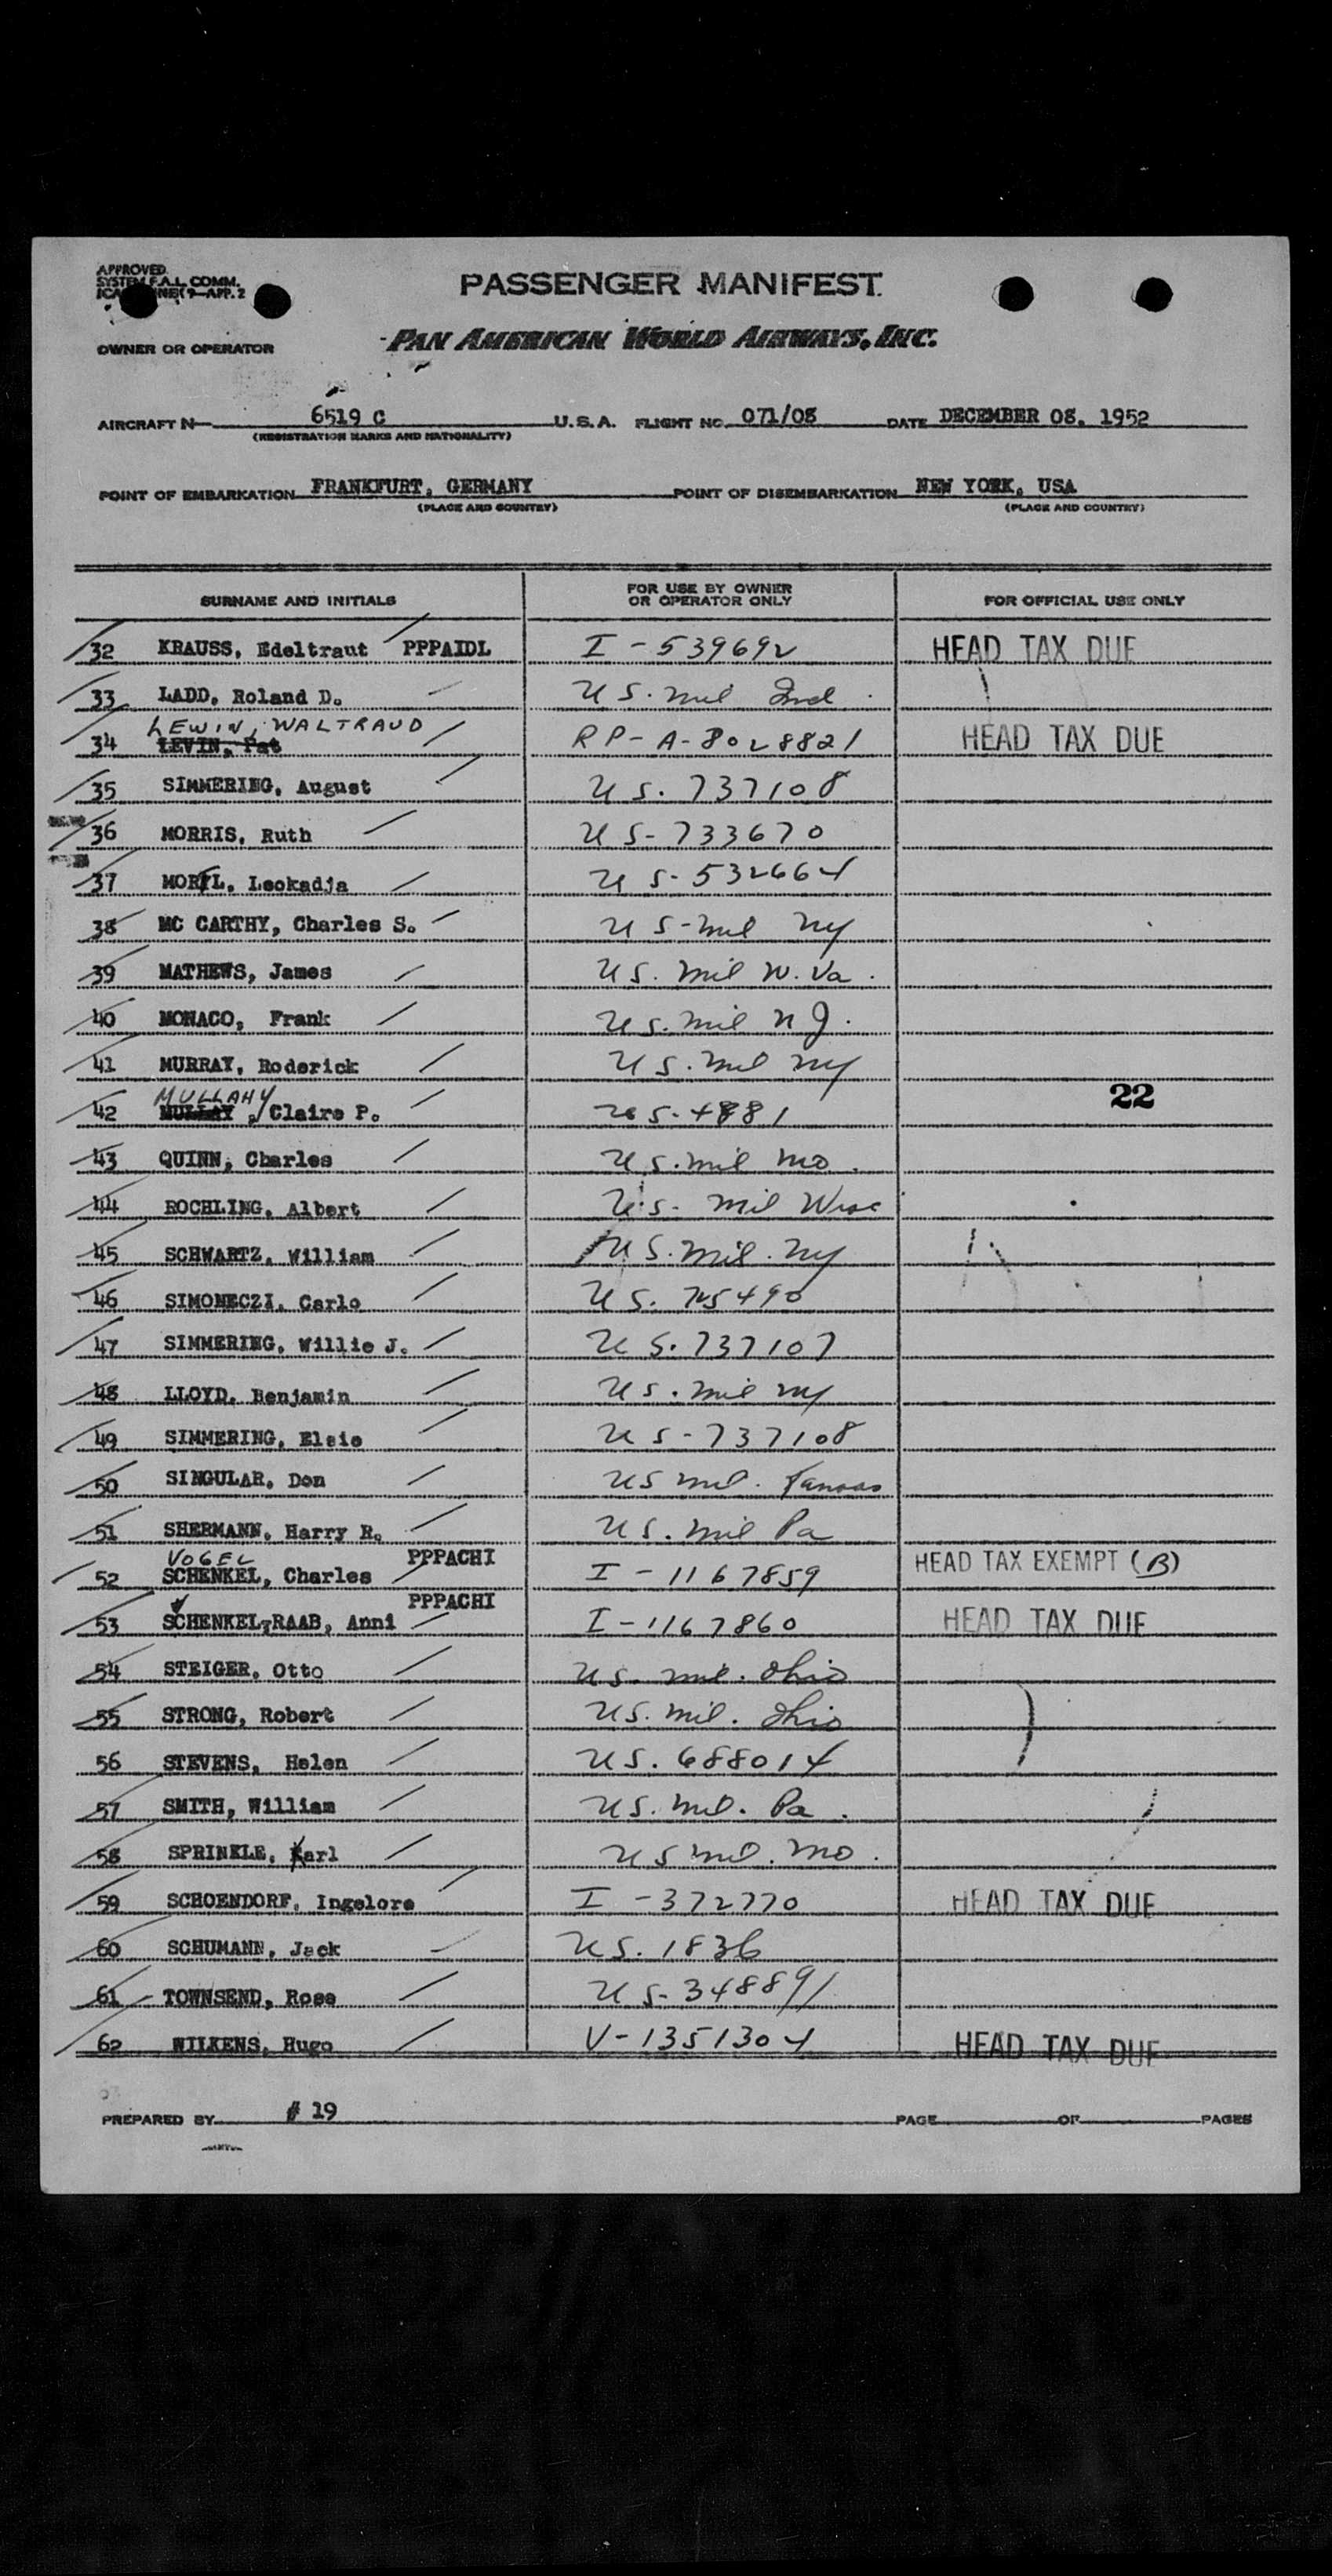 APPROVED
SYSTEM F.A.L. COMM.
9-APP. 2
PASSENGER MANIFEST
OWNER OR OPERATOR PAN AMERICAN WORLD AIRWAYS, INC.
AIRCRAFT N 6519 C U.S.A. FLIGHT NO. 071/08 DATE DECEMBER 08, 1952
(REGISTRATION MARKS AND NATIONALITY)
POINT OF EMBARKATION FRANKFURT, GERMANY POINT OF DISEMBARKATION NEW YORK, USA
(PLACE AND COUNTRY) (PLACE AND COUNTRY)
SURNAME AND INITIALS FOR USE BY OWNER OR OPERATOR ONLY FOR OFFICIAL USE ONLY
32 KRAUSS, Edeltraut PPPAIDL I-539692 HEAD TAX DUE
33 LADD, Roland D. US. mil Ind.
LEWIN, WALTRAUD
34 LEVIN, Pat RP-A-8028821 HEAD TAX DUE
35 SIMMERING, August US. 737108
36 MORRIS, Ruth US-733670
37 MORFL, Leokadja US-532664
38 MC CARTHY, Charles S. US-mil NY
39 MATHEWS, James US. mil W. Va.
40 MONACO, Frank US. mil NJ.
41 MURRAY, Roderick US. mil NY
MULLAHY 22
42 MULLAY, Claire P. US-4881
43 QUINN, Charles US. mil Mo.
44 ROCHLING, Albert US- mil Wisc
45 SCHWARTZ, William US. mil. NY
46 SIMONECZI, Carlo US. 725490
47 SIMMERING, Willie J. US. 737107
48 LLOYD, Benjamin US. mil NY
49 SIMMERING, Elsie US-737108
50 SINGULAR, Don US mil. Kansas
51 SHERMANN, Harry R. US. mil Pa
VOGEL PPPACHI
52 SCHENKEL, Charles I-1167859 HEAD TAX EXEMPT (B)
PPPACHI
53 SCHENKEL-RAAB, Anni I-1167860 HEAD TAX DUE
54 STEIGER, Otto US. mil. Ohio
55 STRONG, Robert US. mil. Ohio
56 STEVENS, Helen US. 688014
57 SMITH, William US. mil. Pa.
58 SPRINKLE, Karl US mil. Mo.
59 SCHOENDORF, Ingelore I-372770 HEAD TAX DUE
60 SCHUMANN, Jack US. 1836
61 TOWNSEND, Rose US-348891
62 WILKENS, Hugo V-1351304 HEAD TAX DUE
PREPARED BY # 19 PAGE OF PAGES